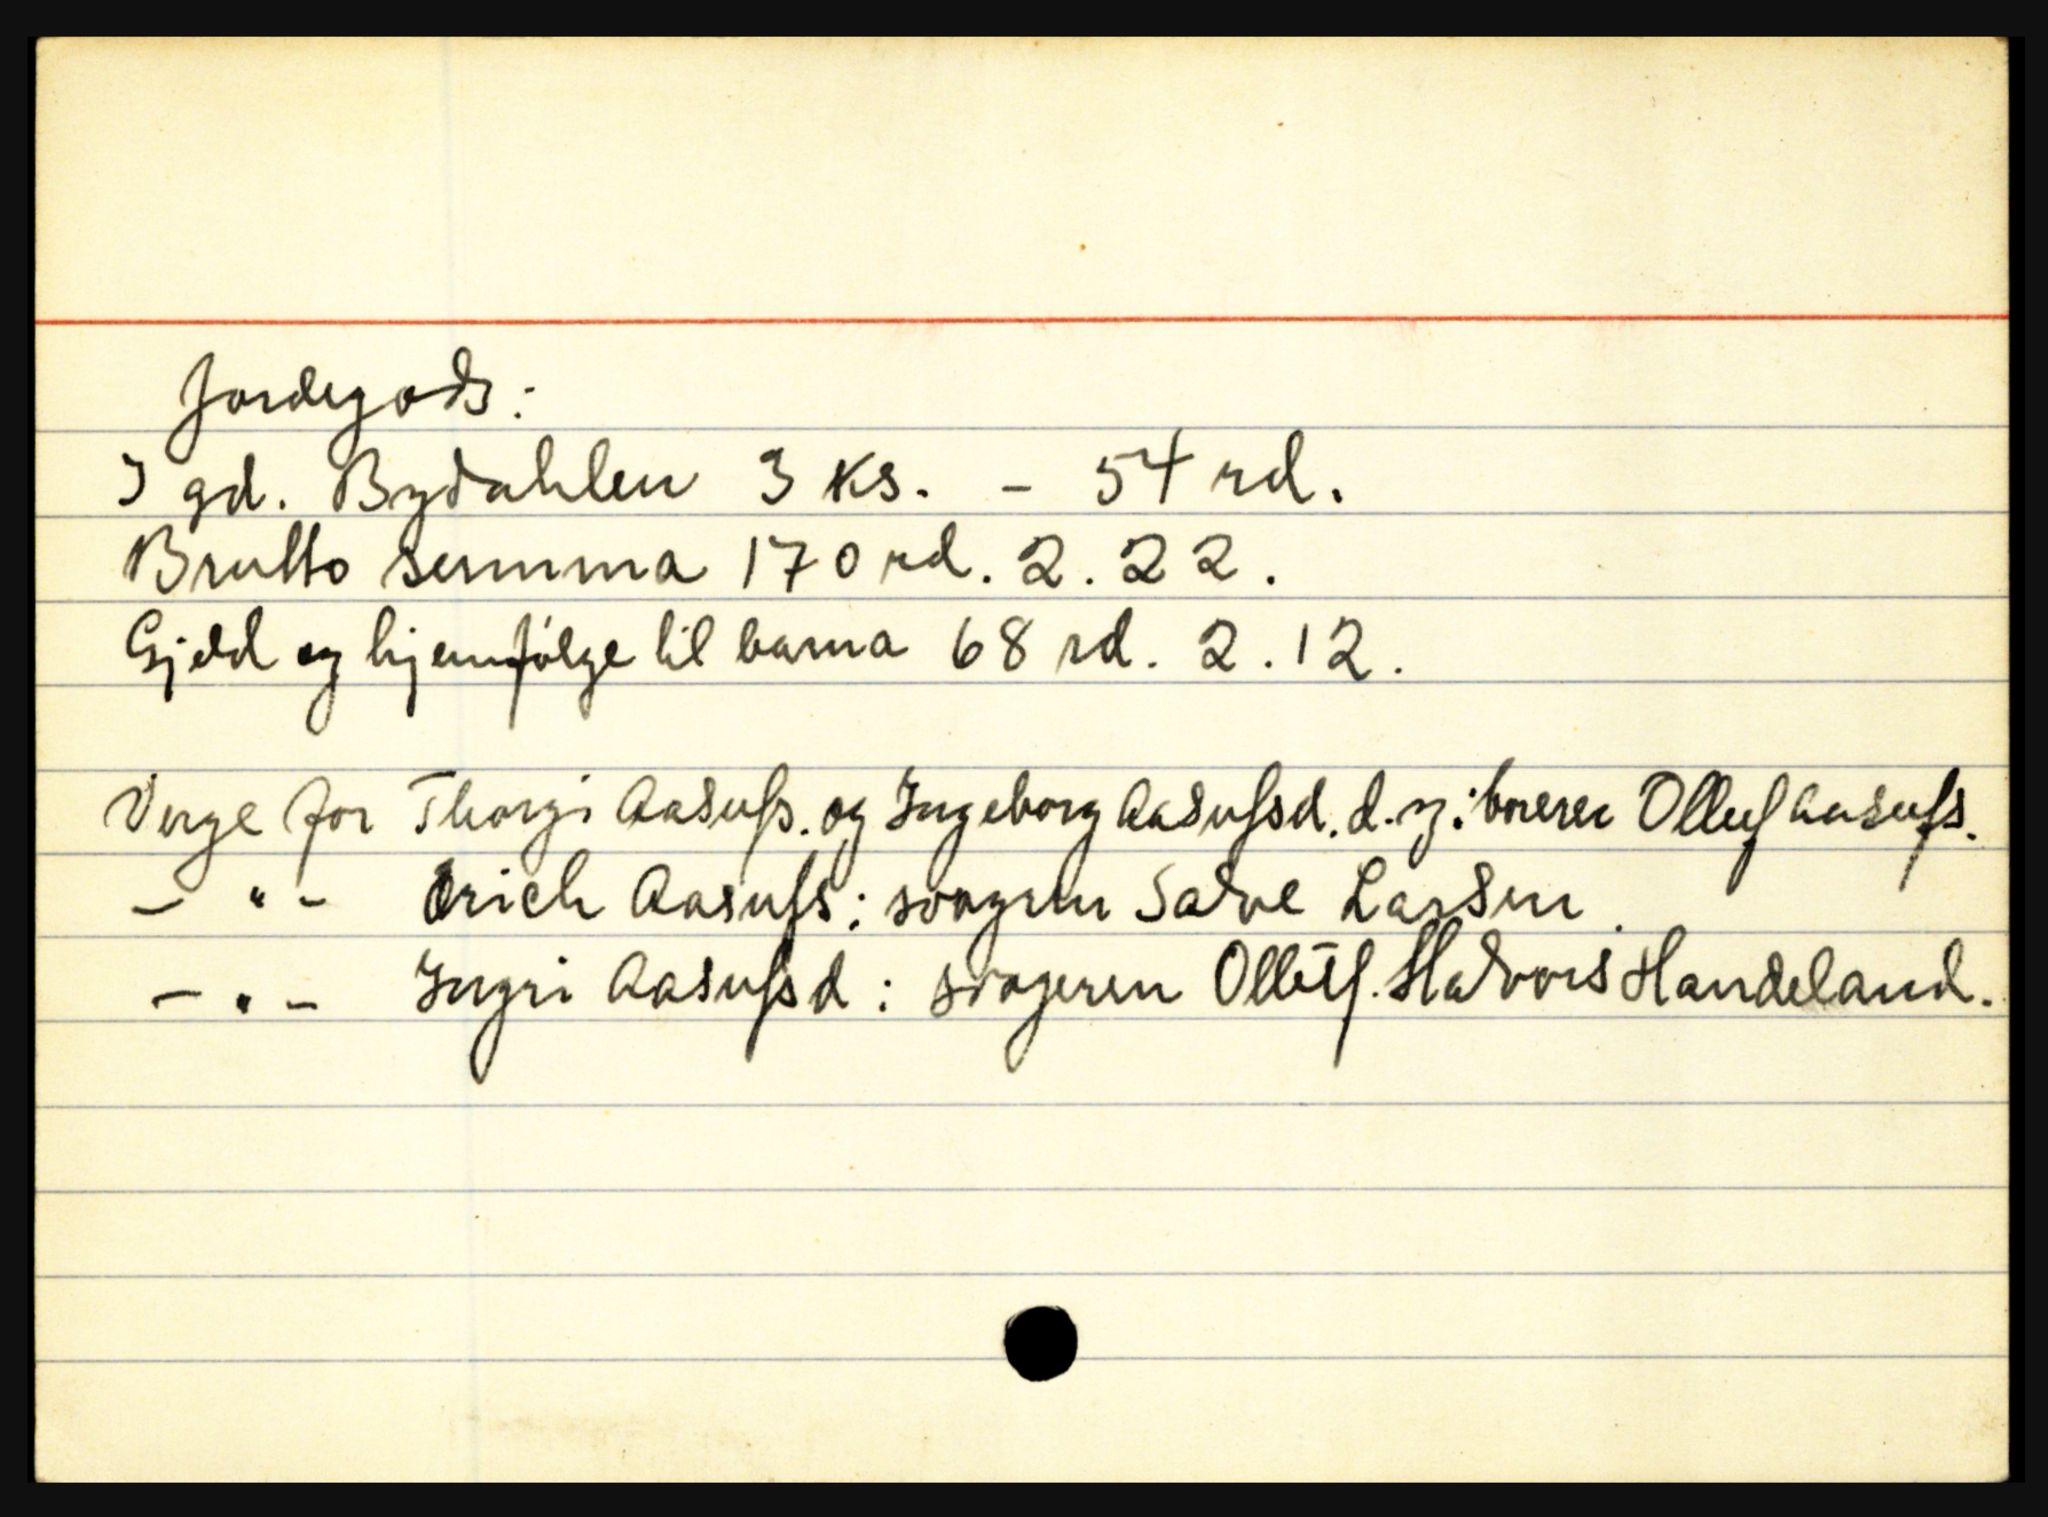 Jordegods:
I gd. Bydahlen 3 ks. - 54 rd.
Brutto summa 170 rd. 2. 22.
Gjeld og hjemfølge til barna 68 rd. 2. 12.
Verge for Thorgi Aasulfs. og Ingeborg Aasulfsd. d. y: broren Olluf Aasulfs.
- " - Erich Aasulfs: svogeren Salve Larsen.
- " - Ingri Aasulfsd: svogeren Olluf. Halvors Handeland.